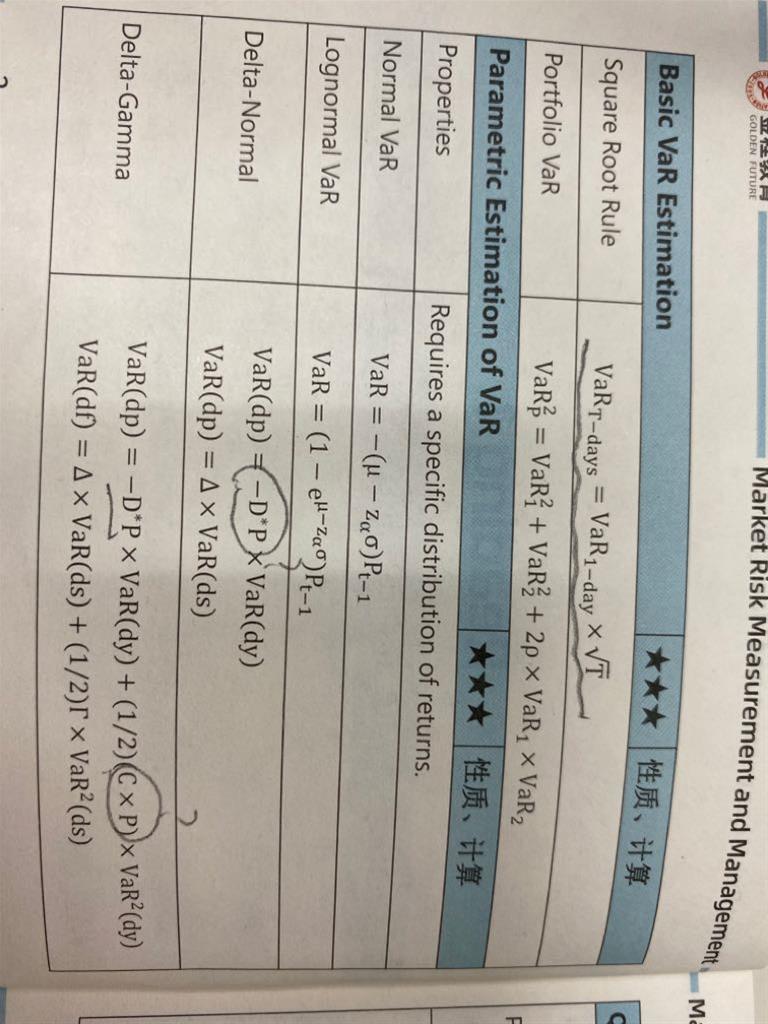 金程教育
GOLDEN FUTURE
Market Risk Measurement and Management
Basic VaR Estimation ★★★ 性质、计算
Square Root Rule VaR_{T−days} = VaR_{1−day} × √T
Portfolio VaR VaR_P^2 = VaR_1^2 + VaR_2^2 + 2ρ × VaR_1 × VaR_2
Parametric Estimation of VaR ★★★ 性质、计算
Properties Requires a specific distribution of returns.
Normal VaR VaR = −(μ − z_α σ)P_{t−1}
Lognormal VaR VaR = (1 − e^{μ−z_α σ})P_{t−1}
Delta-Normal
VaR(dp) = −D*P × VaR(dy)
VaR(dp) = Δ × VaR(ds)
Delta-Gamma
VaR(dp) = −D*P × VaR(dy) + (1/2)(C × P) × VaR²(dy)
VaR(df) = Δ × VaR(ds) + (1/2)Γ × VaR²(ds)